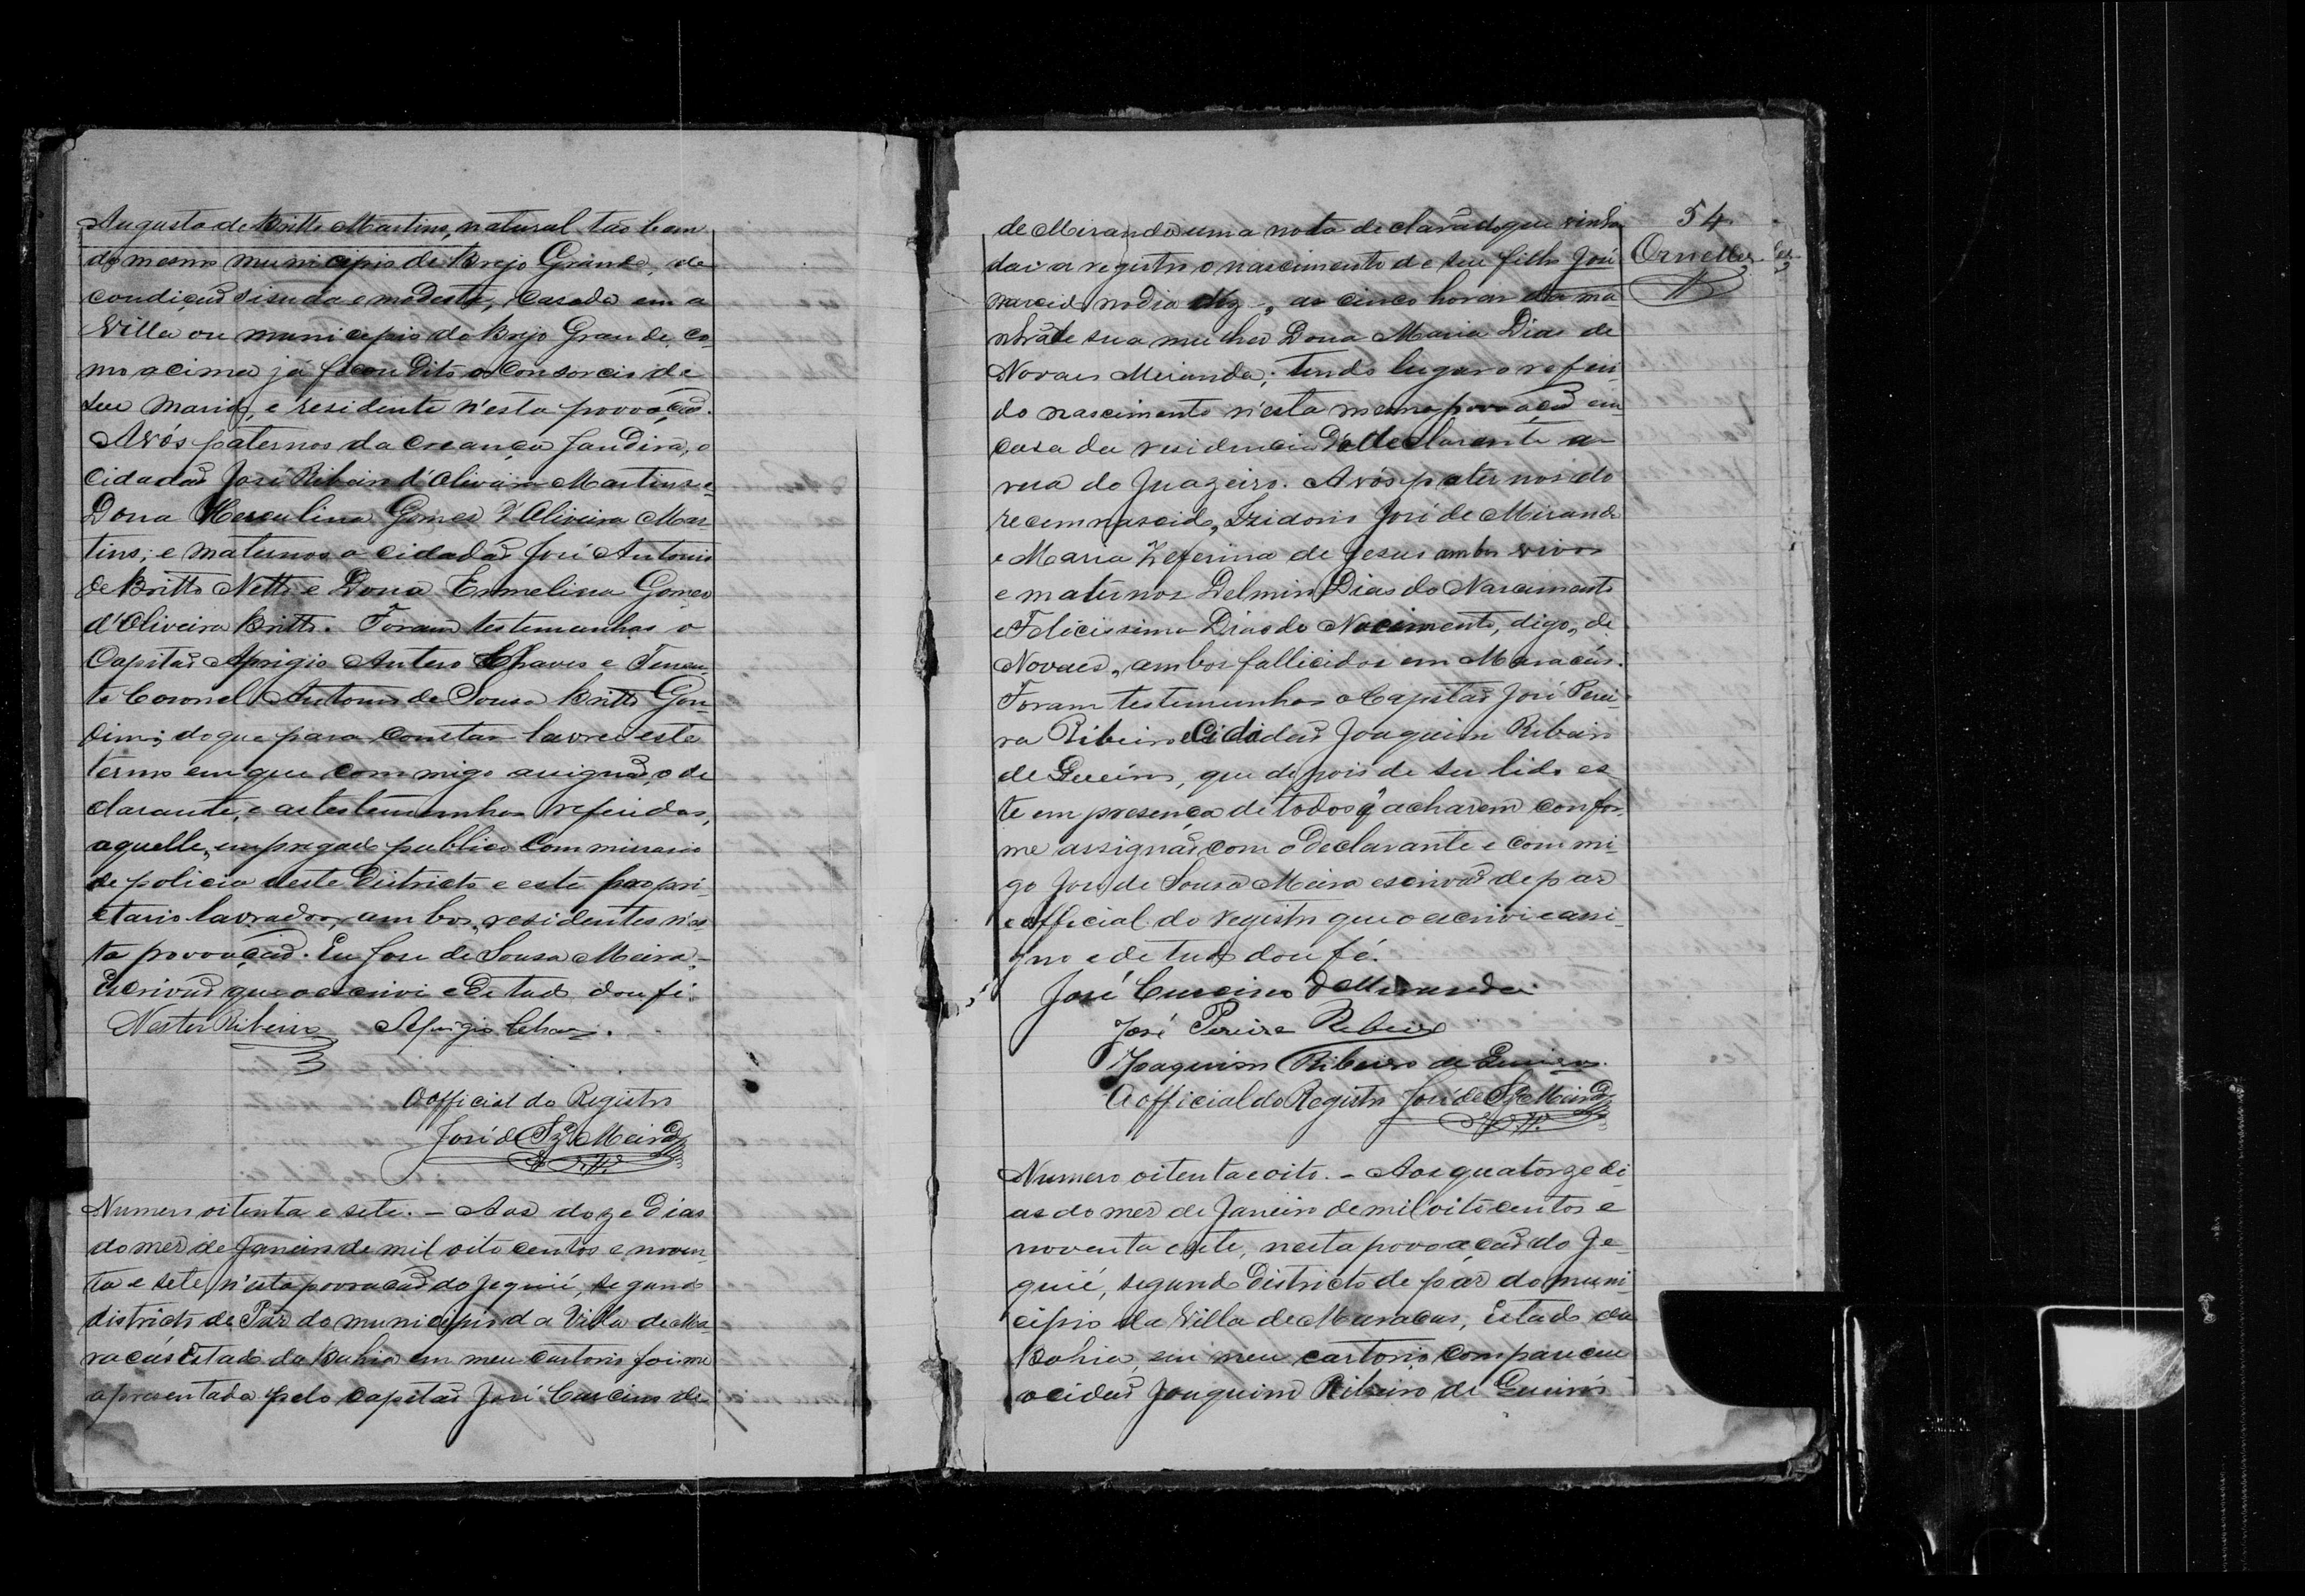 Augusta de Britto Martins, natural tão bem
do mesmo municipio de Brejo Grande, de
condição sisuda e modesta, casada em a
Villa ou municipio do Brejo Grande, co-
mo acima já ficou dito o consorcio de
seu marido, e residente n'esta povoação.
Avós paternos da creança Jandira, o
Cidadão José Ribeiro d'Oliveira Martins e
Dona Herculina Gomes d'Oliveira Mar
tins; e maternos o cidadão José Antonio
de Britto Netto e Dona Ermelina Gomes
d'Oliveira Britto. Foram testemunhas o
Capitão Aprigio Antero Chaves e Tenen-
te Coronel Antonio de Sousa Britto Gon-
dim; do que para constar lavrei este
termo em que commigo assignão, o de
clarante, e as testemunhas referidas,
aquelle, empregado publico Commissario
de policia neste Districto e este propri-
etario lavrador, ambos residentes n'es
ta povoação. Eu José de Sousa Meira,
Escrivão que o escrivi e de tudo dou fé.
Nestor Ribeiro Aprigio Chaves.
O official do Registro
José de Sza Meira
Numero oitenta e sete. - Aos doze dias
do mes de Janeiro de mil oito centos e noven-
ta e sete, n'esta povoação do Jequié, segundo
districto de Paz do municipio da Villa de Ma-
racás Estado da Bahia em meu cartorio foi me
apresentada pelo capitão José Curcino de
54.
Ornellas
de Miranda uma nota declarado que vinha
dar a registro o nascimento de seu filho José
nascido no dia dez, as cinco horas da ma
nhã de sua mulher Dona Maria Dias de
Novaes Miranda; tendo lugar o referi-
do nascimento n'esta mesma povoação em
casa da residencia do declarante a
rua do Juazeiro. Avós paternos do
recemnascido, Izidorio José de Miranda
e Maria Zeferina de Jesus ambos vivos
e maternos Delmiro Dias do Nascimento
e Felicissima Dias do Nacimento, digo, de
Novaes, ambos fallicidos em Maracás.
Foram testemunhas o Capitão José Perei-
ra Ribeiro e Cidadão Joaquim Ribeiro
de Queiros, que depois de ser lido es-
te em presença de todos q' acharem confor-
me assignão com o declarante e commi-
go José de Sousa Meira escrivão de paz
e official do registro que o escrivi e assi-
gno e de tudo dou fé.
José Curcino de Miranda
José Pereira Ribeiro
Joaquim Ribeiro de Queiros.
O official do Registro José de Sza Meira
Numero oitenta e oito. - Aos quatorze di-
as do mes de Janeiro de mil oito centos e
noventa e sete, nesta povoação do Je-
quié, segundo Districto de paz do muni-
cipio da Villa de Maracas, Estado da
Bahia, em meu cartorio compareceu
o cidão Joaquim Ribeiro de Queirós